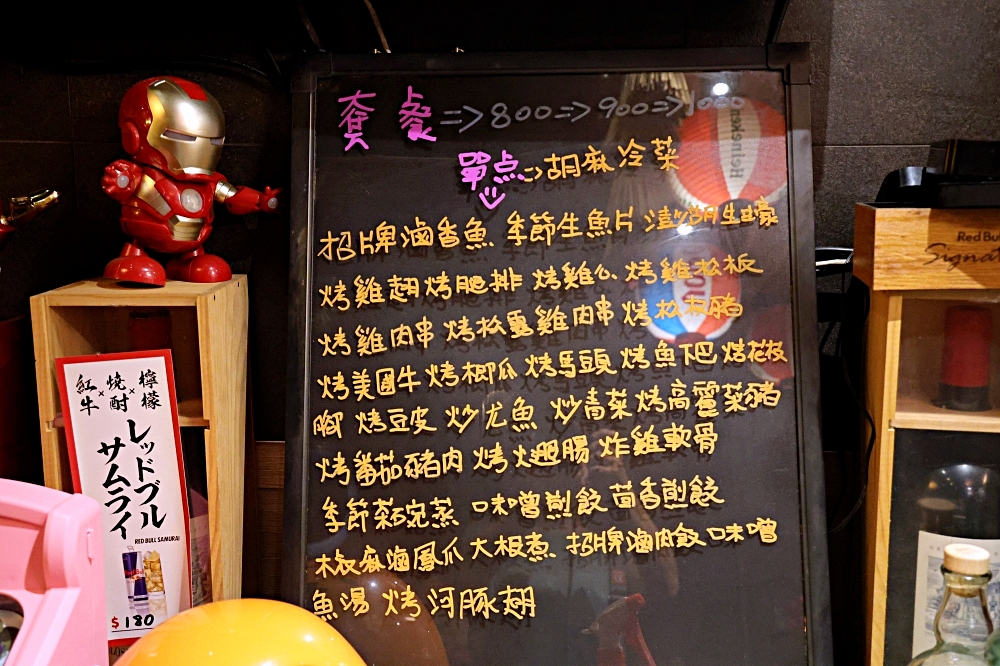 套餐=>800=>900=>1000
單点=>胡麻冷菜
招牌滷香魚 季節生魚片 澎湖生蠔
烤雞翅 烤肥排 烤雞心 烤雞松板
烤雞肉串 烤松露雞肉串 烤松板豬
烤美國牛 烤櫛瓜 烤馬頭 烤魚下巴 烤花枝
腳 烤豆皮 炒尤魚 炒青菜 烤高麗菜豬
烤番茄豬肉 烤 腸 炸雞軟骨
季節茶碗蒸 味噌煎餃 茴香煎餃
椒麻滷鳳爪 大根煮 招牌滷肉飯 味噌
魚湯 烤河豚翅
紅牛×燒酎×檸檬
レッドブル
サムライ
RED BULL SAMURAI
$180
Heineken
Red Bull